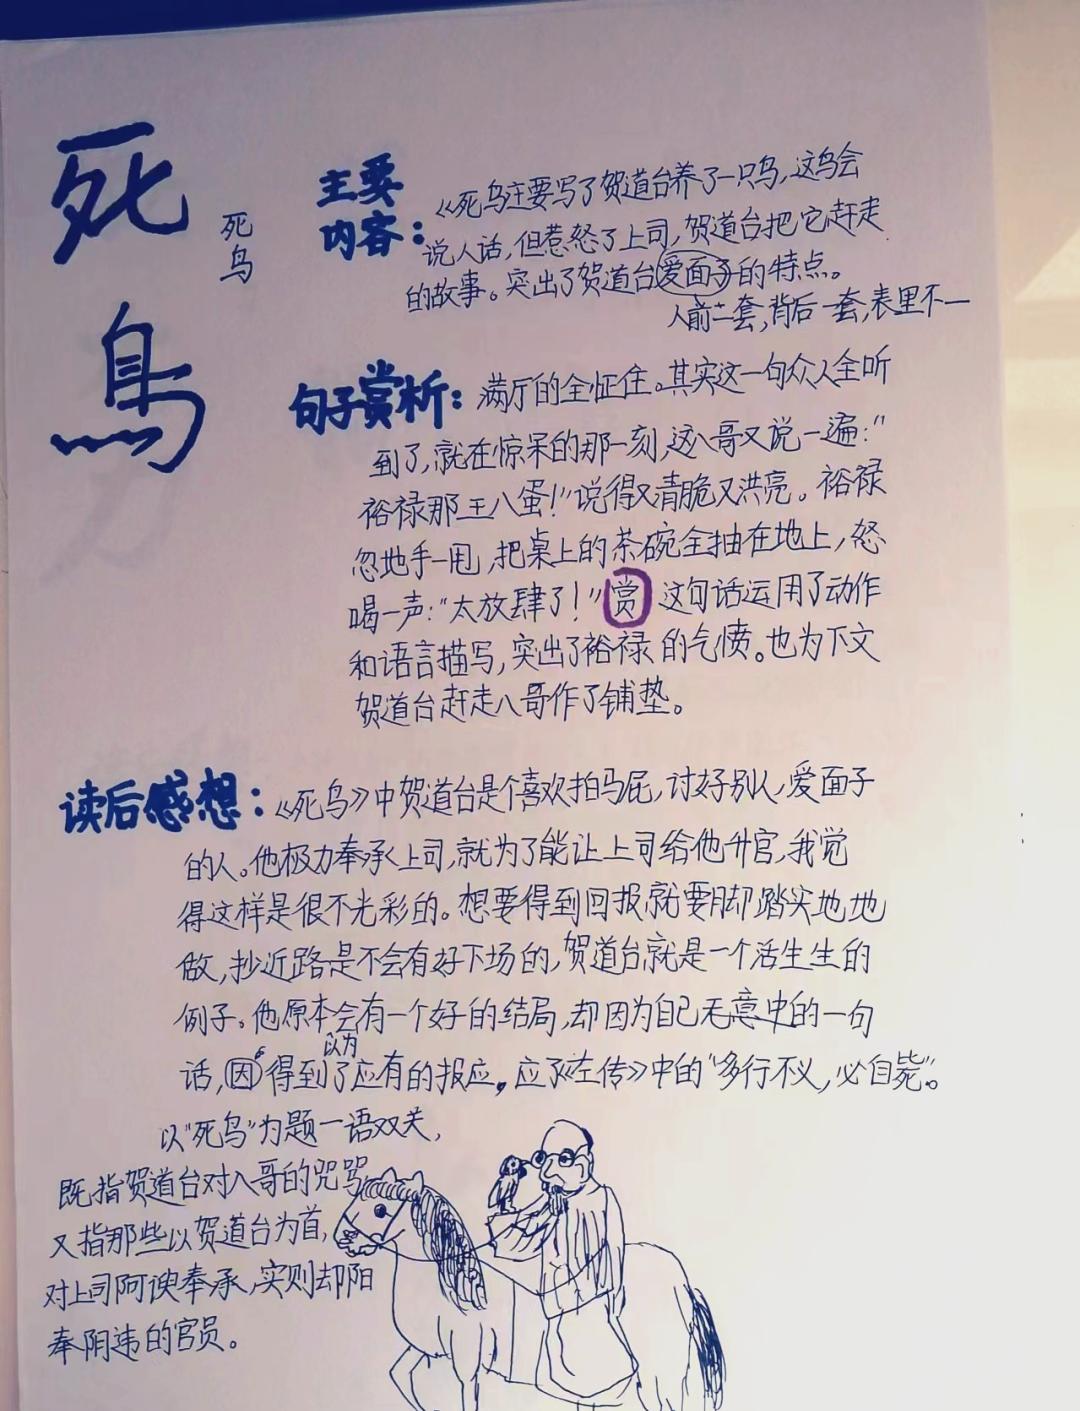 死鸟
死鸟
主要内容：
《死鸟主要写了贺道台养了一只鸟，这鸟会
说人话，但惹怒了上司，贺道台把它赶走
的故事。突出了贺道台爱面子的特点。
人前一套，背后一套，表里不一
句子赏析：满厅的全怔住。其实这一句众人全听
到了，就在惊呆的那一刻，这八哥又说一遍："
裕禄那王八蛋！"说得又清脆又洪亮。裕禄
忽地手一甩，把桌上的茶碗全抽在地上，怒
喝一声："太放肆了！"赏 这句话运用了动作
和语言描写，突出了裕禄的气愤。也为下文
贺道台赶走八哥作了铺垫。
读后感想：《死鸟》中贺道台是个喜欢拍马屁，讨好别人，爱面子
的人。他极力奉承上司，就为了能让上司给他升官，我觉
得这样是很不光彩的。想要得到回报就要脚踏实地地
做，抄近路是不会有好下场的，贺道台就是一个活生生的
例子。他原本会有一个好的结局，却因为自己无意中的一句
以为
话，因得到了应有的报应。应了《左传》中的"多行不义，必自毙"。
以"死鸟"为题一语双关，
既指贺道台对八哥的咒骂
又指那些以贺道台为首，
对上司阿谀奉承，实则却阳
奉阴违的官员。